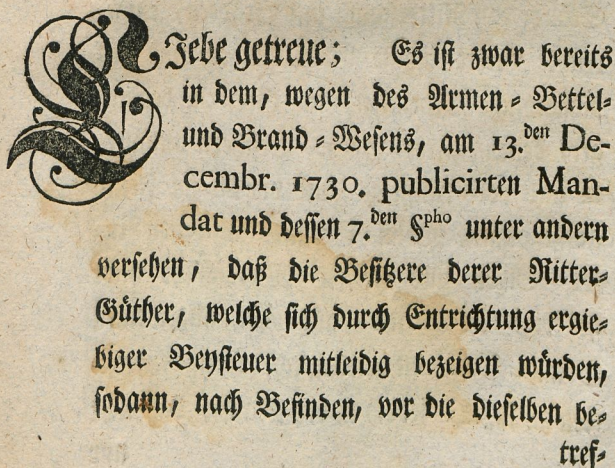 LIebe getreue; Es ist zwar bereits
in dem, wegen des Armen-Bettel-
und Brand-Wesens, am 13.den De-
cembr. 1730. publicirten Man-
dat und dessen 7.den §pho unter andern
versehen, daß die Besitzere derer Ritter-
Güther, welche sich durch Entrichtung ergie-
biger Beysteuer mitleidig bezeigen würden,
sodann, nach Befinden, vor die dieselben be-
tref-